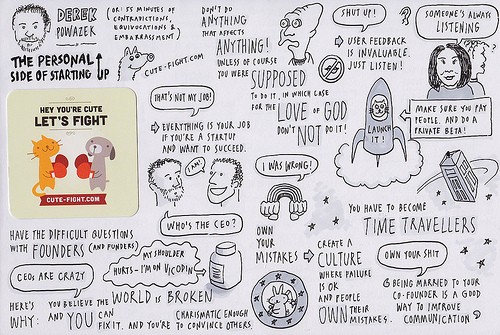 DEREK
POWAZEK
THE PERSONAL
SIDE OF STARTING UP
(OR: 55 MINUTES OF
CONTRADICTIONS,
EQUIVOCATIONS &
EMBARRASSMENT)
CUTE-FIGHT.COM
HEY YOU'RE CUTE
LET'S FIGHT
CUTE-FIGHT.COM
DON'T DO
ANYTHING
THAT AFFECTS
ANYTHING!
UNLESS OF COURSE
YOU WERE SUPPOSED
TO DO IT, IN WHICH CASE
FOR THE LOVE OF GOD
DON'T NOT DO IT!
SHUT UP!
USER FEEDBACK
IS INVALUABLE.
JUST LISTEN!
SOMEONE'S ALWAYS
LISTENING
?
LAUNCH
IT!
MAKE SURE YOU PAY
PEOPLE. AND DO A
PRIVATE BETA!
THAT'S NOT MY JOB!
EVERYTHING IS YOUR JOB
IF YOU'RE A STARTUP
AND WANT TO SUCCEED.
I AM!
WHO'S THE CEO?
I WAS WRONG!
OWN
YOUR
MISTAKES
CREATE A
CULTURE
WHERE FAILURE
IS OK
AND PEOPLE
OWN THEIR
MISTAKES.
YOU HAVE TO BECOME
TIME TRAVELLERS
OWN YOUR SHIT
BEING MARRIED TO YOUR
CO-FOUNDER IS A GOOD
WAY TO IMPROVE
COMMUNICATION
HAVE THE DIFFICULT QUESTIONS
WITH FOUNDERS (AND FUNDERS)
CEOs ARE CRAZY
MY SHOULDER
HURTS - I'M ON VICODIN
HERE'S
WHY:
YOU BELIEVE THE WORLD IS BROKEN
AND YOU CAN
FIX IT. AND YOU'RE
CHARISMATIC ENOUGH
TO CONVINCE OTHERS.